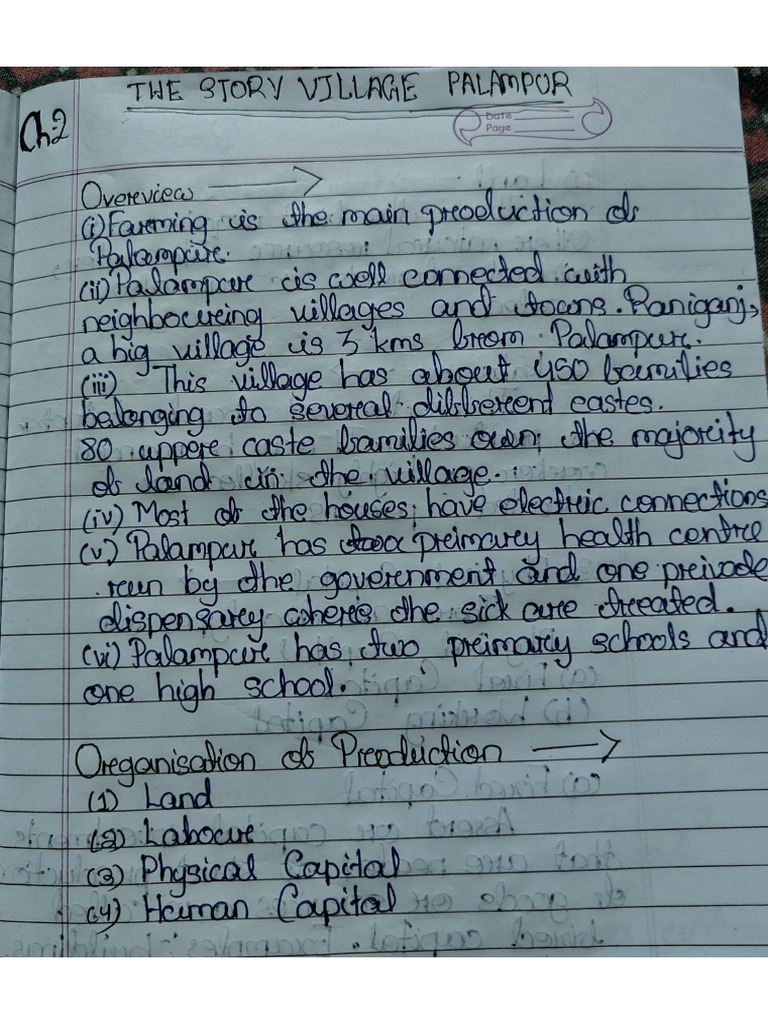 THE STORY VILLAGE PALAMPUR
Ch:2
Date
Page
Overview →
(i) Farming is the main production of
Palampur.
(ii) Palampur is well connected with
neighbouring villages and towns. Raniganj,
a big village is 3 kms from Palampur.
(iii) This village has about 450 families
belonging to several different castes.
80 upper caste families own the majority
of land in the village.
(iv) Most of the houses have electric connections
(v) Palampur has a primary health centre
run by the government and one private
dispensary where the sick are treated.
(vi) Palampur has two primary schools and
one high school.
Organisation of Production →
(1) Land
(2) Labour
(3) Physical Capital
(4) Human Capital